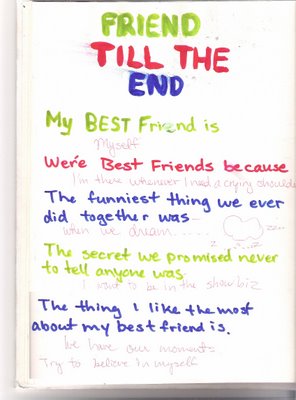 FRIEND
TILL THE
END
My BEST Friend is
Myself
We're Best Friends because
I'm there whenever I need a crying shoulder
The funniest thing we ever
did together was
when we dream.....
zz..
z..
The secret we promised never
to tell anyone was
I want to be in the showbiz
The thing I like the most
about my best friend is.
We have our moments
Try to believe in myself